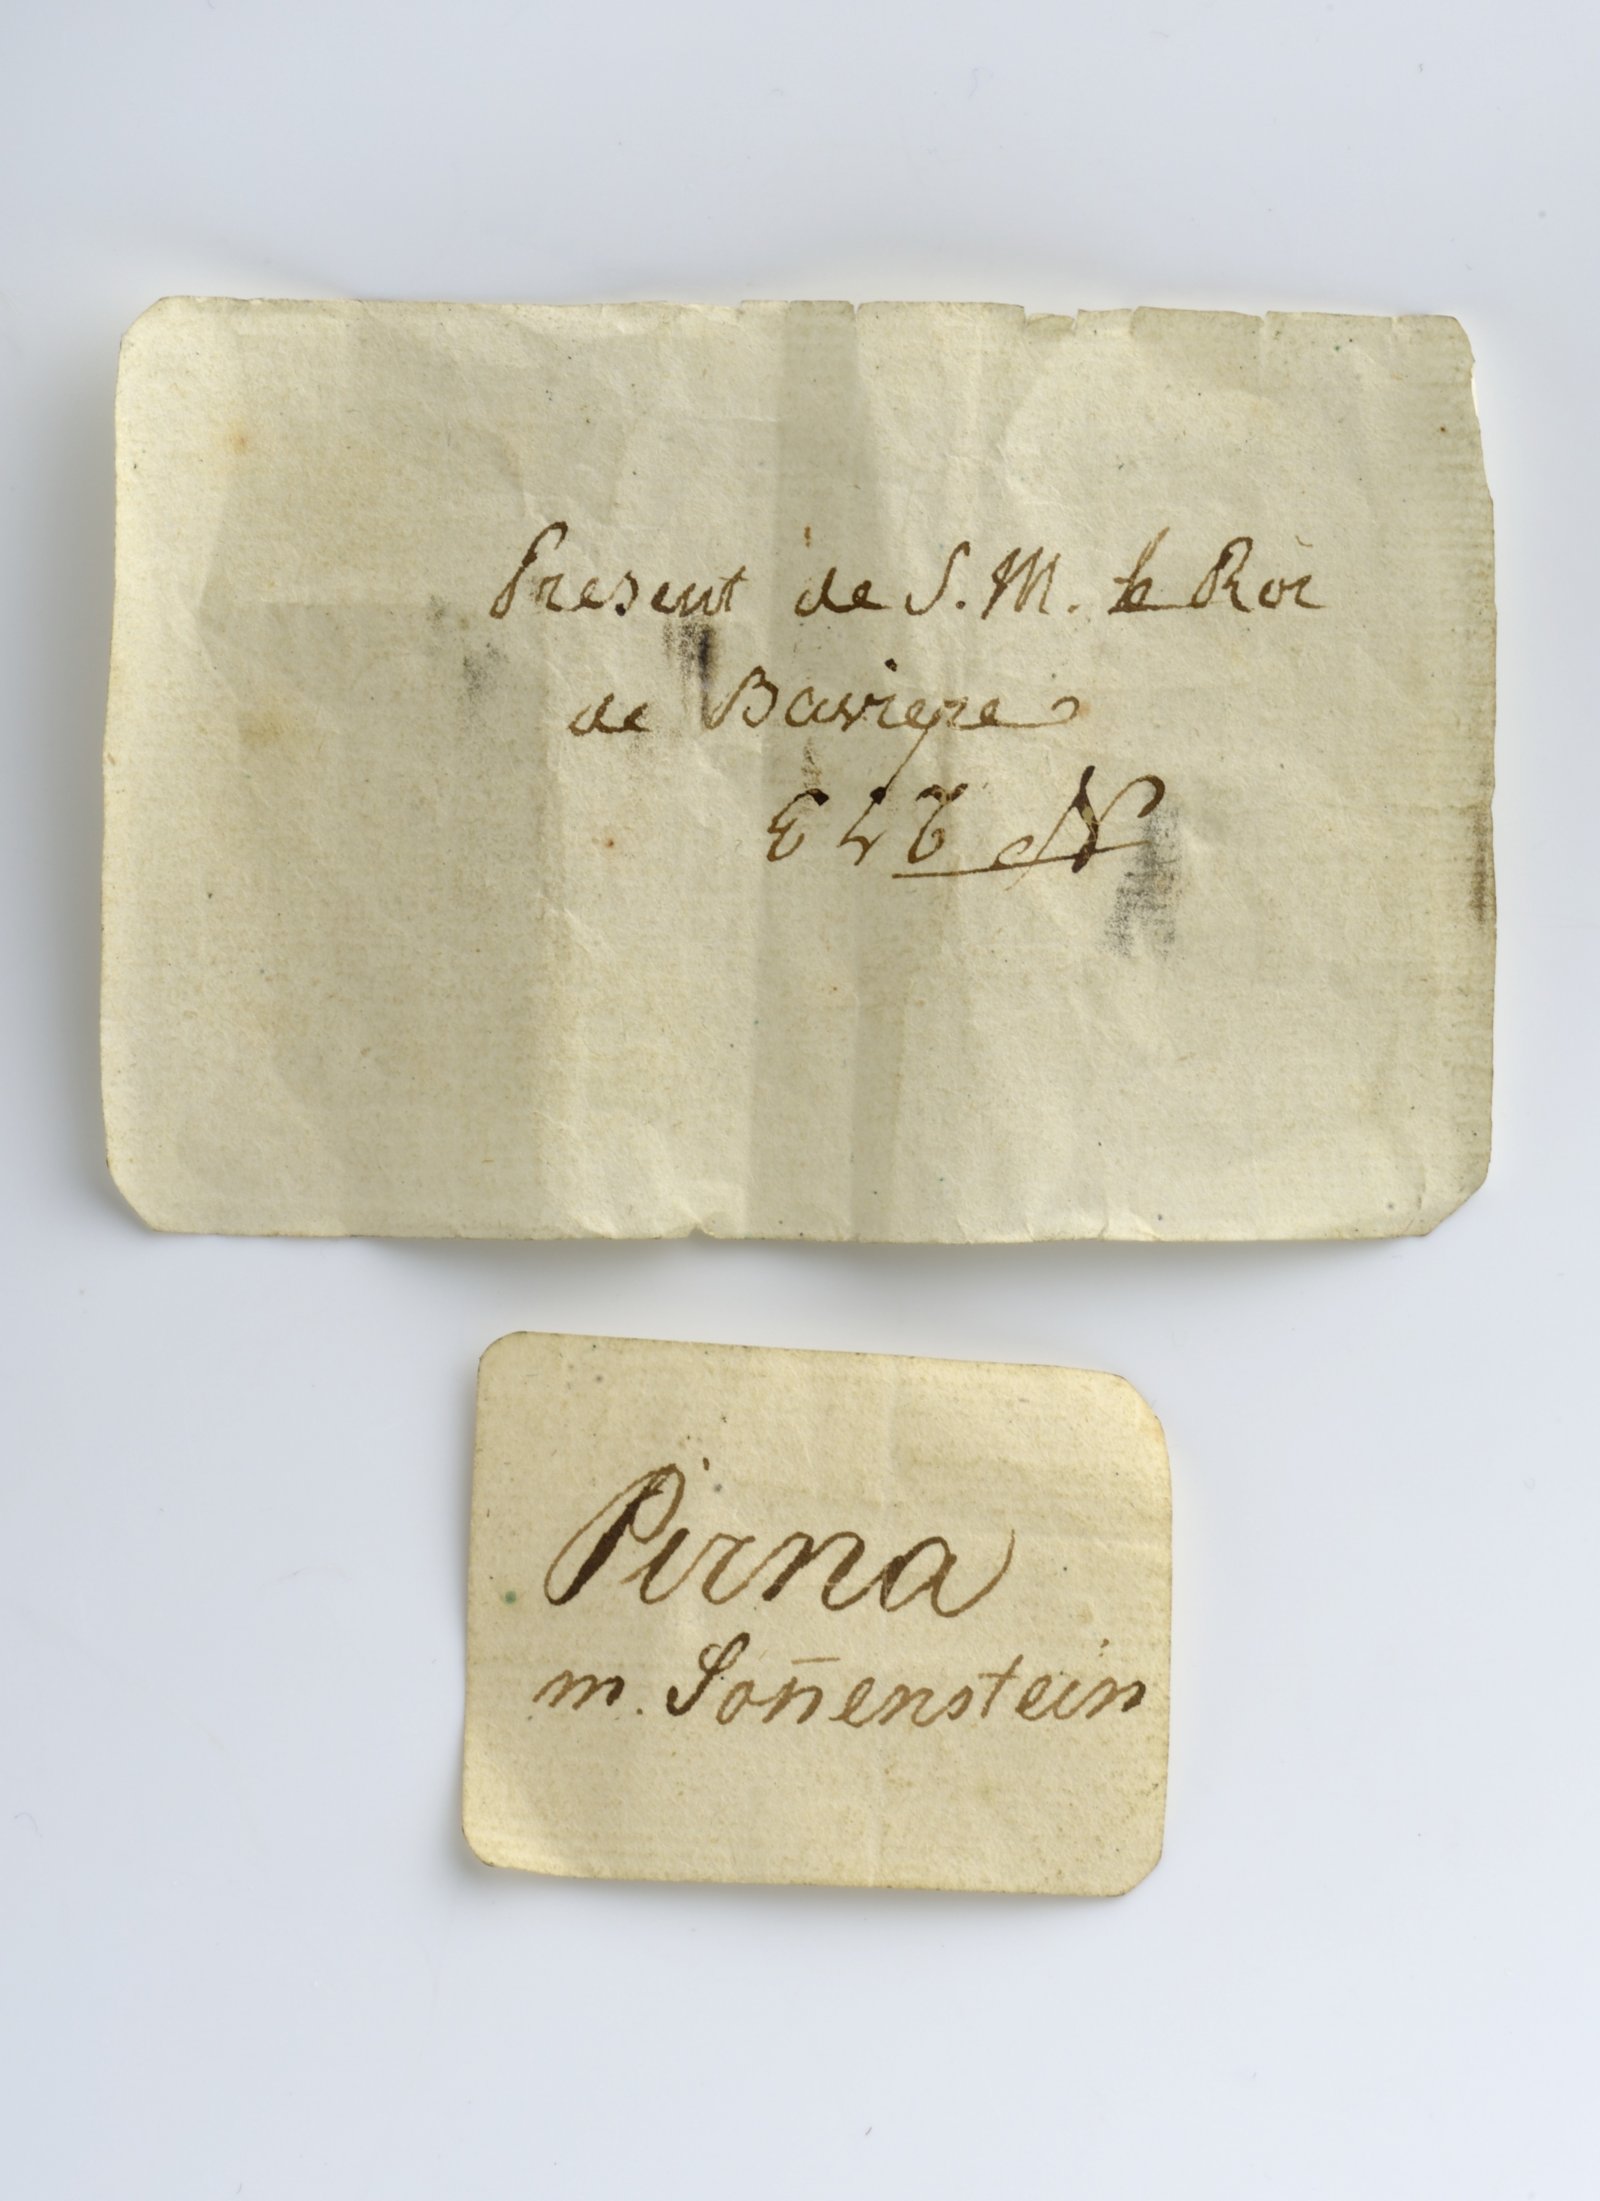 Present de S. M. le Roi
de Baviere
Pirna
m. Son̄enstein